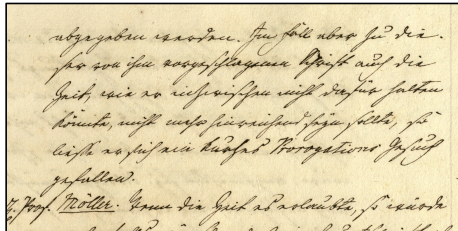 abgegeben werden. Im Fall aber zu die-
ser von ihm vorgeschlagenen Schrift auch die
Zeit, wie er inzwischen nicht dafür halten
könnte, nicht mehr hinreichend seyn sollte, so
ließe er sich ein kurzes Prorogations Gesuch
gefallen.
Prof. Möller. Wenn die Zeit es erlaubte, so würde